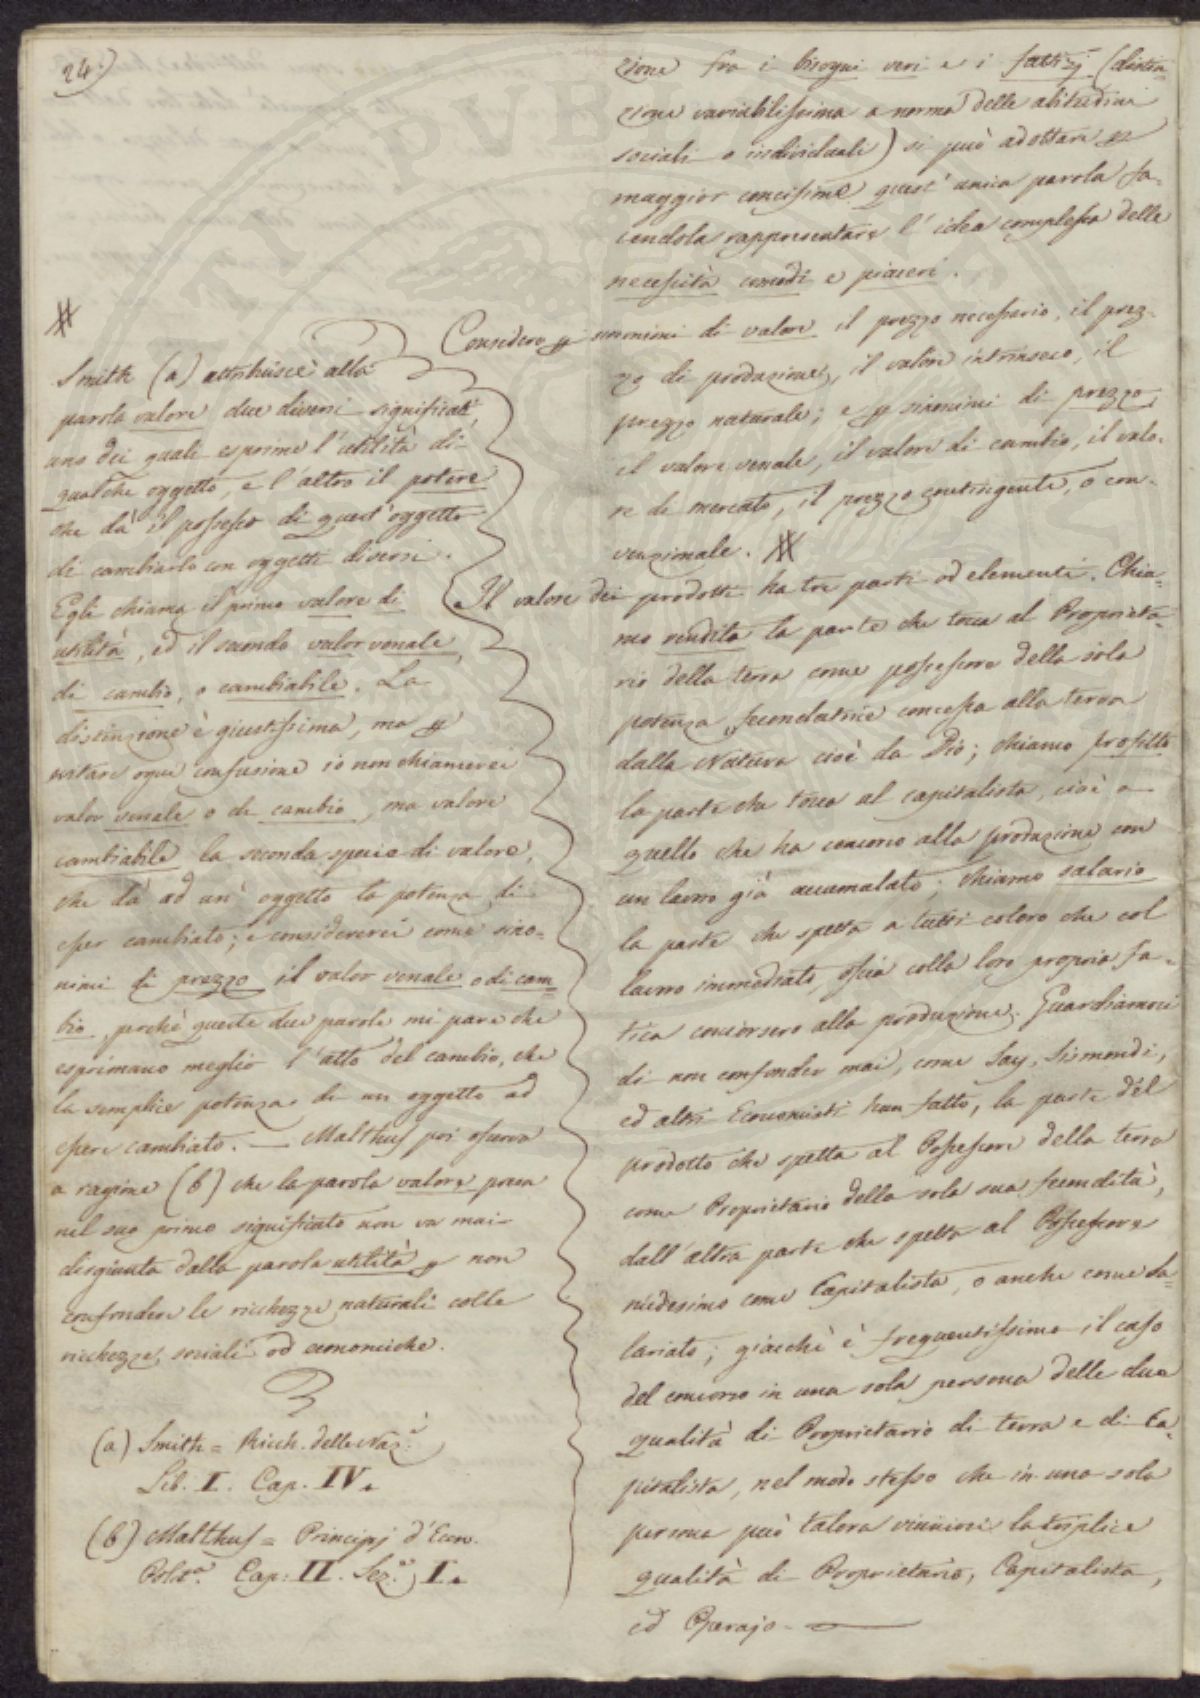 24.)
zione fra i bisogni veri e i fattizj (distin-
zione variabilissima a norma delle abitudini
sociali o individuali) si può adottare p
maggior concisione quest' unica parola fa-
cendola rappresentare l' idea complessa delle
necessità comodi e piaceri.
Considero p sinonimi di valore il prezzo necessario, il prez-
zo di produzione, il valore intrinseco, il
prezzo naturale; e p sinonimi di prezzo,
il valore venale, il valore di cambio, il valo-
re di mercato, il prezzo contingente, o con-
venzionale. #
Il valore dei prodotti ha tre parti od elementi. Chia-
mo rendita la parte che tocca al Proprieta-
rio della terra come possessore della sola
potenza fecondatrice concessa alla terra
dalla Natura cioè da Dio; chiamo profitto
la parte che tocca al capitalista, cioè a
quello che ha concorso alla produzione con
un lavoro già accumulato; chiamo salario
la parte che spetta a tutti coloro che col
lavoro immediato, ossia colla loro propria fa-
tica concorsero alla produzione. Guardiamoci
di non confonder mai, come Say, Sismondi,
ed altri Economisti han fatto, la parte del
prodotto che spetta al Possessore della terra
come Proprietario della sola sua fecondità,
dall' altra parte che spetta al Possessore
medesimo come Capitalista, o anche come Sa-
lariato; giacchè è frequentissimo il caso
del concorso in una sola persona delle due
qualità di Proprietario di terra e di Ca-
pitalista, nel modo stesso che in una sola
persona può talora unirsi la triplice
qualità di Proprietario, Capitalista,
ed Operajo.
#
Smith (a) attribuisce alla
parola valore due diversi significati,
uno dei quali esprime l' utilità di
qualche oggetto, e l' altro il potere
che dà il possesso di quest' oggetto
di cambiarlo con oggetti diversi.
Egli chiama il primo valore di
utilità, ed il secondo valor venale,
di cambio, o cambiabile. La
distinzione è giustissima, ma p
evitare ogni confusione io non chiamerei
valor venale o di cambio, ma valore
cambiabile la seconda specie di valore,
che dà ad un' oggetto la potenza di
esser cambiato; e considererei come sino-
nimi di prezzo il valor venale o di cam-
bio, perchè queste due parole mi pare che
esprimano meglio l' atto del cambio, che
la semplice potenza di un oggetto ad
essere cambiato. — Malthus poi osserva
a ragione (b) che la parola valore presa
nel suo primo significato non va mai
disgiunta dalla parola utilità p non
confondere le ricchezze naturali colle
ricchezze sociali od economiche.
(a) Smith = Ricch. delle Naz.i
Lib. I. Cap. IV.
(b) Malthus = Principj d' Econ.
Polit.a Cap: II. Sez.e I.